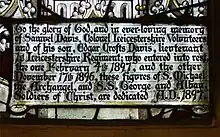 To the glory of God, and in ever-loving memory
of Samuel Davis, Colonel Leicestershire Volunteers
and of his son, Edgar Crofts Davis, lieutenant
Leicestershire Regiment, who entered into rest,
the one February 1897, and the other
November 17th 1896, these figures of S. Michael
the Archangel, and S.S. George and Alban
Soldiers of Christ, are dedicated A.D. 1897